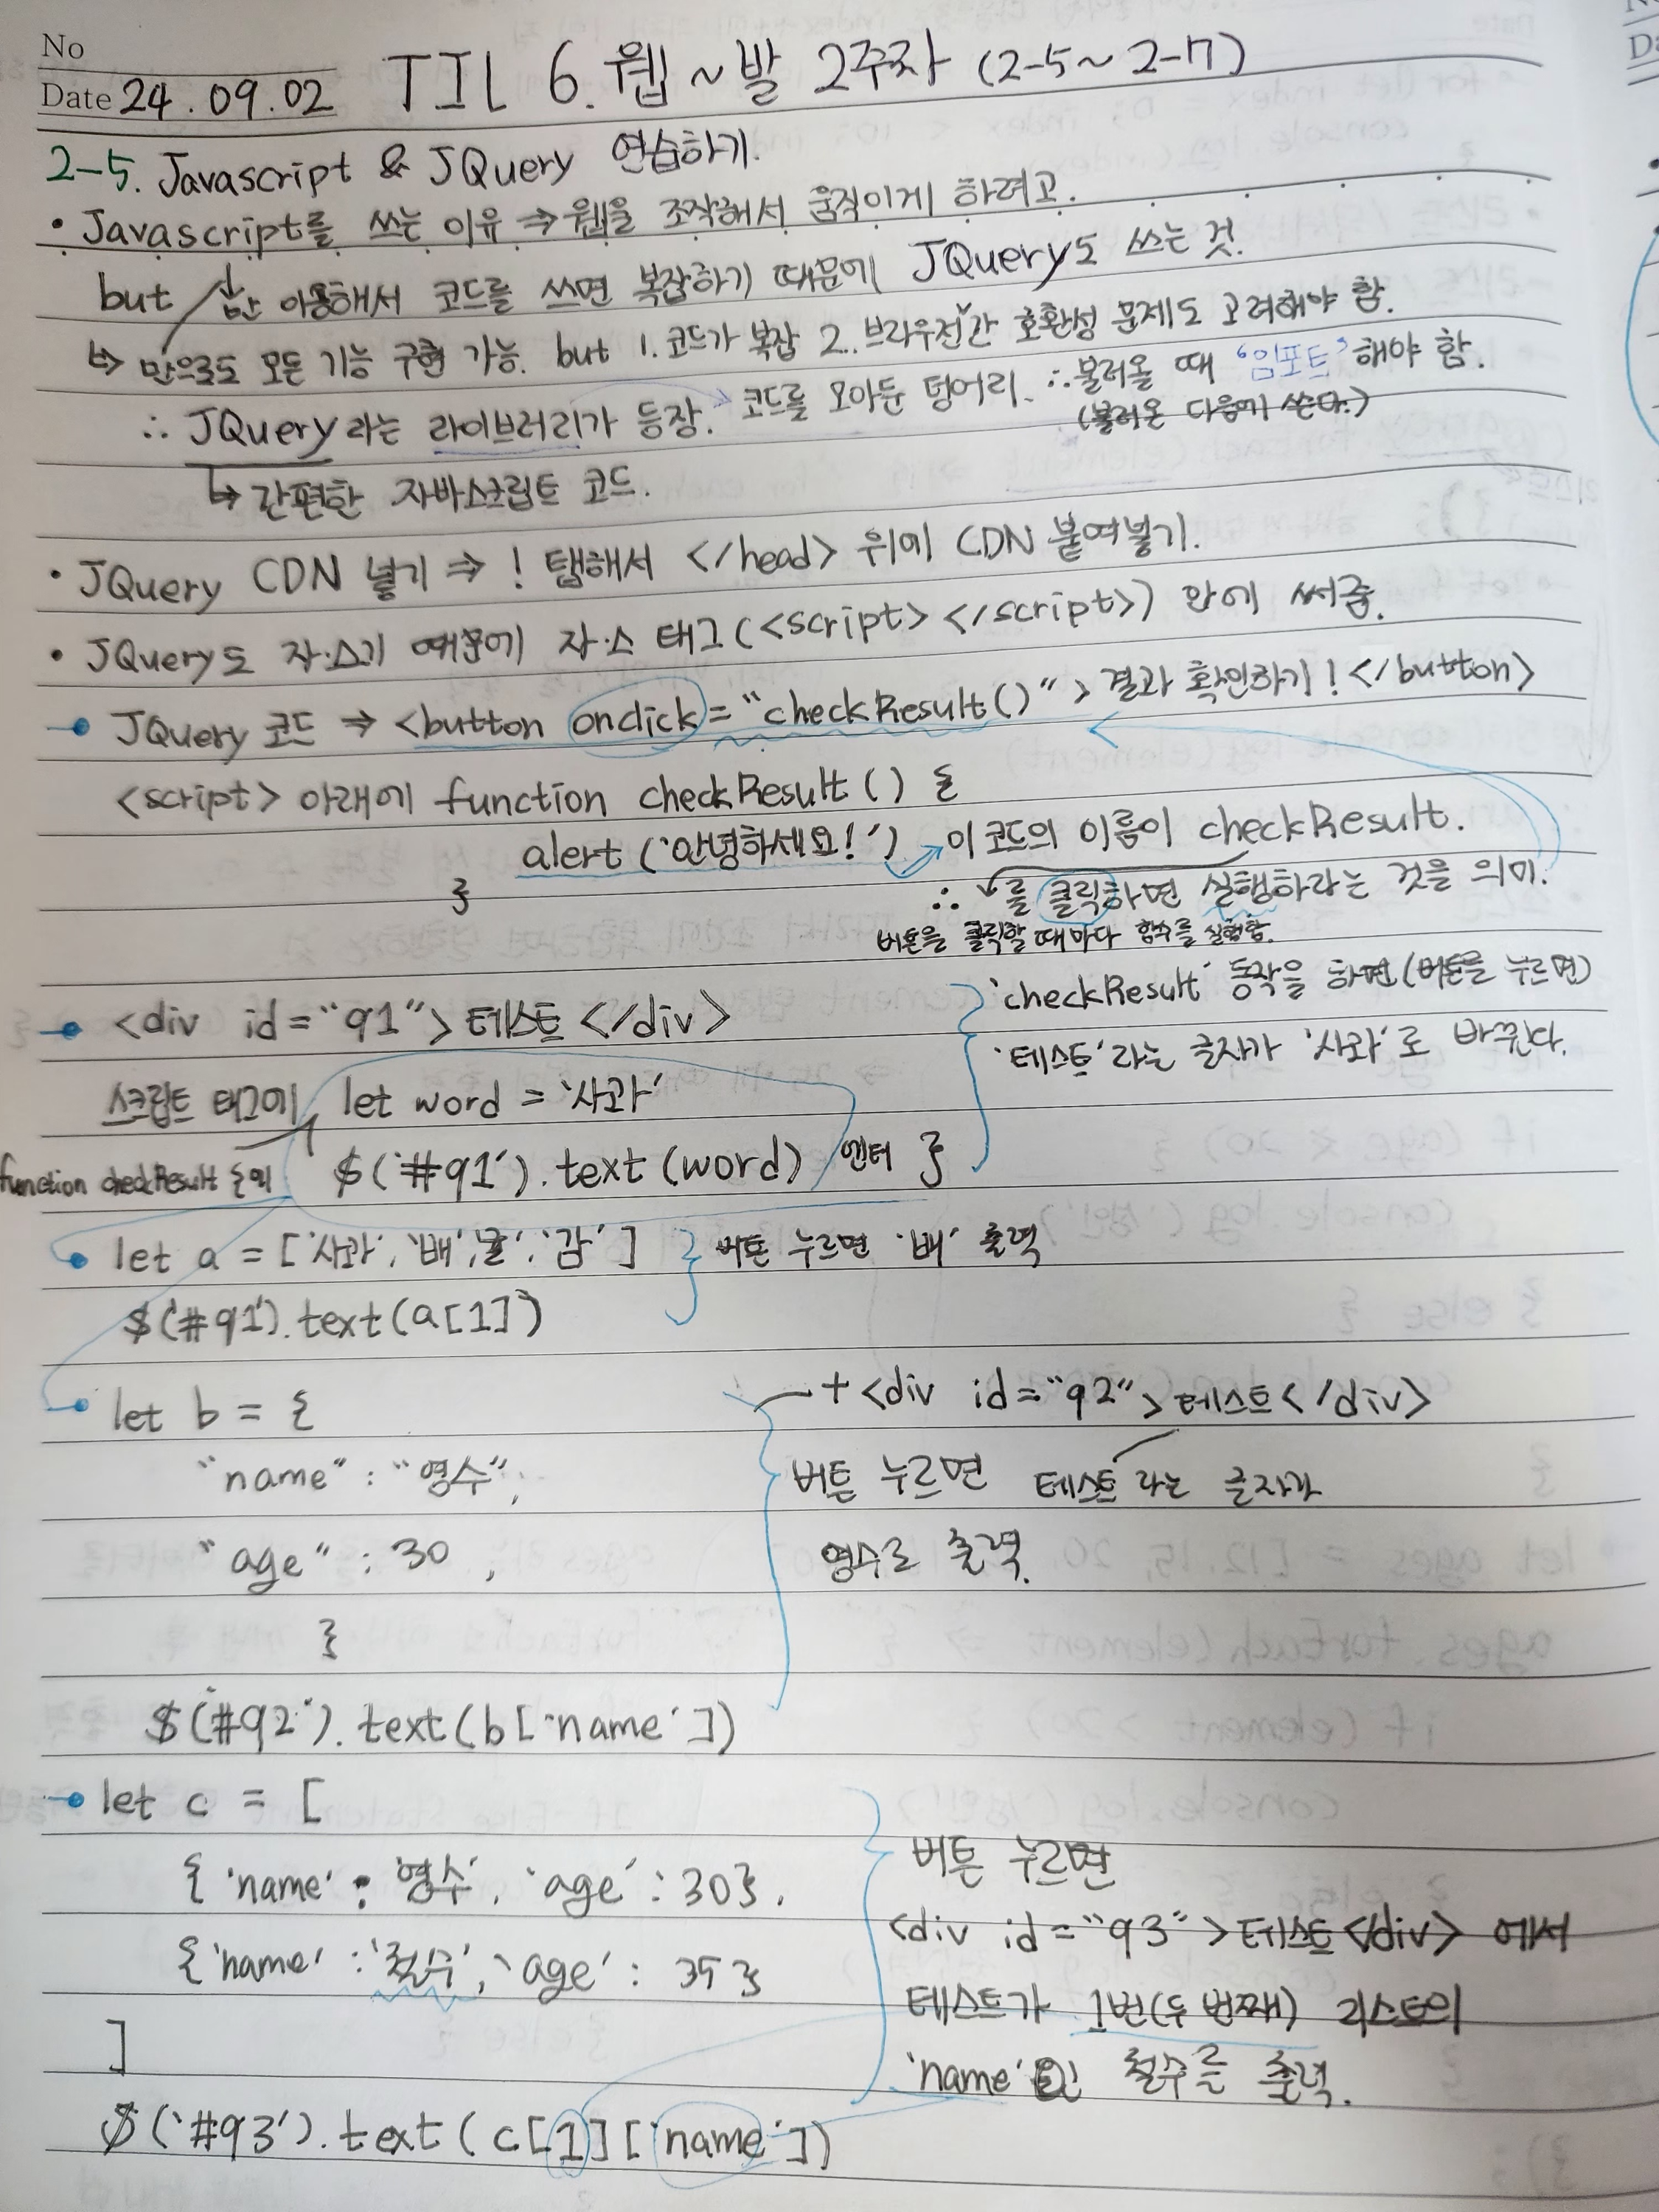 No
Date 24.09.02 TIL 6. 웹~발 2주차 (2-5~2-7)
2-5. Javascript & JQuery 연습하기.
• Javascript를 쓰는 이유 ⇒ 웹을 조작해서 움직이게 하려고.
but 만 이용해서 코드를 쓰면 복잡하기 때문에 JQuery도 쓰는 것.
↳ 만으로도 모든 기능 구현 가능. but 1. 코드가 복잡 2. 브라우전간 호환성 문제도 고려해야 함.
∴ JQuery라는 라이브러리가 등장. → 코드를 모아둔 덩어리. ∴ 불러올 때 '임포트' 해야 함.
(불러온 다음에 쓴다.)
↳ 간편한 자바스크립트 코드.
• JQuery CDN 넣기 ⇒ ! 탭해서 </head> 위에 CDN 붙여넣기.
• JQuery도 자.스기 때문에 자.스 태그(<script> </script>) 안에 써줌.
JQuery 코드 ⇒ <button onclick="checkResult()"> 결과 확인하기! </button>
<script> 아래에 function checkResult() {
alert('안녕하세요!') → 이 코드의 이름이 checkResult.
}
∴ 를 클릭하면 실행하라는 것을 의미.
버튼을 클릭할 때마다 함수를 실행함.
<div id="q1">테스트</div>
'checkResult' 동작을 하면 (버튼을 누르면)
'테스트'라는 글자가 '사과'로 바뀐다.
스크립트 태그에 let word = '사과'
function checkResult {에 $('#q1').text(word) 엔터 }
let a = ['사과', '배', '귤', '감'] } 버튼 누르면 '배' 출력
$('#q1').text(a[1])
let b = {
"name" : "영수",
"age" : 30,
}
$('#q2').text(b['name'])
+ <div id="q2">테스트</div>
버튼 누르면 테스트라는 글자가
영수로 출력.
let c = [
{'name' : '영수', 'age' : 30},
{'name' : '철수', 'age' : 35}
]
$('#q3').text(c[1]['name'])
버튼 누르면
<div id="q3">테스트</div> 에서
테스트가 1번(두 번째) 리스트의
'name'인 철수를 출력.